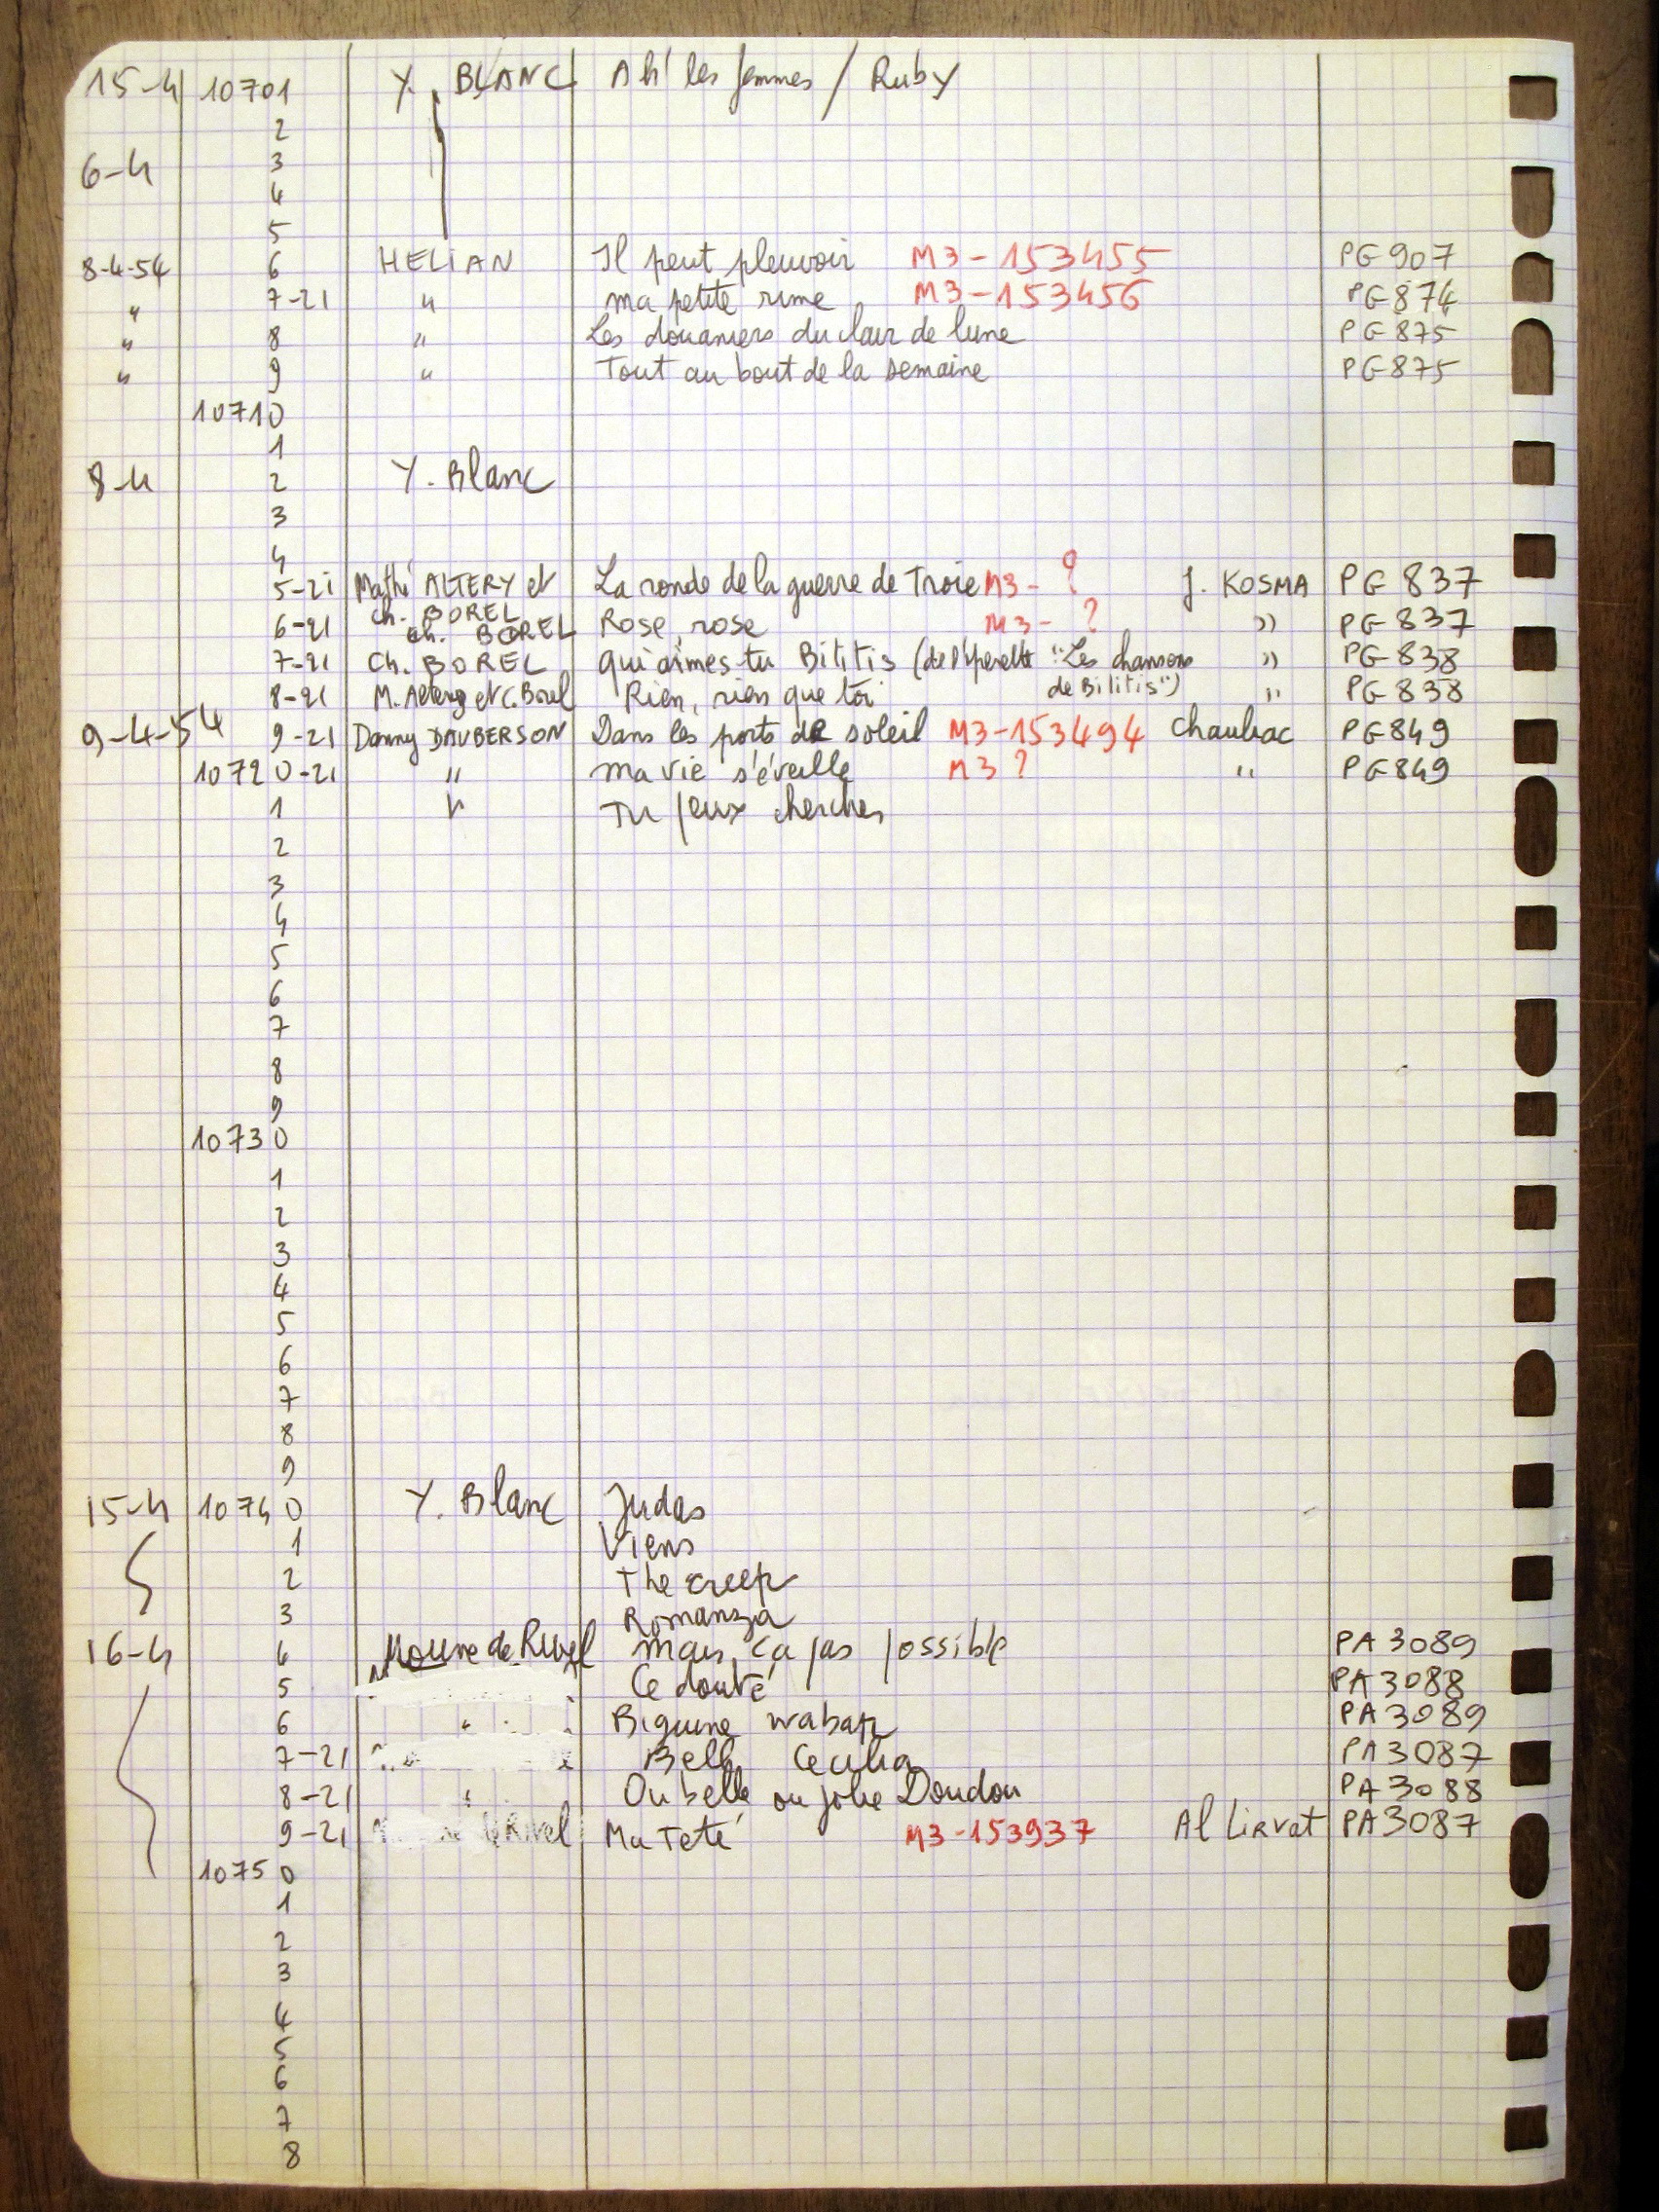 15-4 10701 Y. BLANC Ah! les femmes / Ruby
2
6-4 3
4
5
8-4-54 6 HELIAN Il peut pleuvoir M3-153455 PG 907
" 7-21 " ma petite rime M3-153456 PG 874
" 8 " Les douaniers du clair de lune PG 875
" 9 " Tout au bout de la semaine PG 875
10710
1
8-4 2 Y. Blanc
3
4
5-21 Mathé ALTERY et La ronde de la guerre de Troie M3-? J. KOSMA PG 837
ch. BOREL
6-21 ch. BOREL Rose, rose M3-? " PG 837
7-21 Ch. BOREL qui aimes-tu Bilitis (de l'opérette "Les chansons " PG 838
de Bilitis")
8-21 M. Altery et C. Borel Rien, rien que toi " PG 838
9-4-54 9-21 Danny DAUBERSON Dans les ports de soleil M3-153494 Chauliac PG 849
10720-21 " ma vie s'éveille M3 ? " PG 849
1 " Tu peux chercher
2
3
4
5
6
7
8
9
10730
1
2
3
4
5
6
7
8
9
15-4 10740 Y. Blanc Judas
1 Viens
2 The creep
3 Romanza
16-4 4 Moune de Rivel mais, ça pas possible PA 3089
5 Ce douté PA 3088
6 " Biguine wabap PA 3089
7-21 Belle Cecilia PA 3087
8-21 " Ou belle ou jolie Doudou PA 3088
9-21 Rivel Ma Teté M3-153937 Al Lirvat PA 3087
10750
1
2
3
4
5
6
7
8